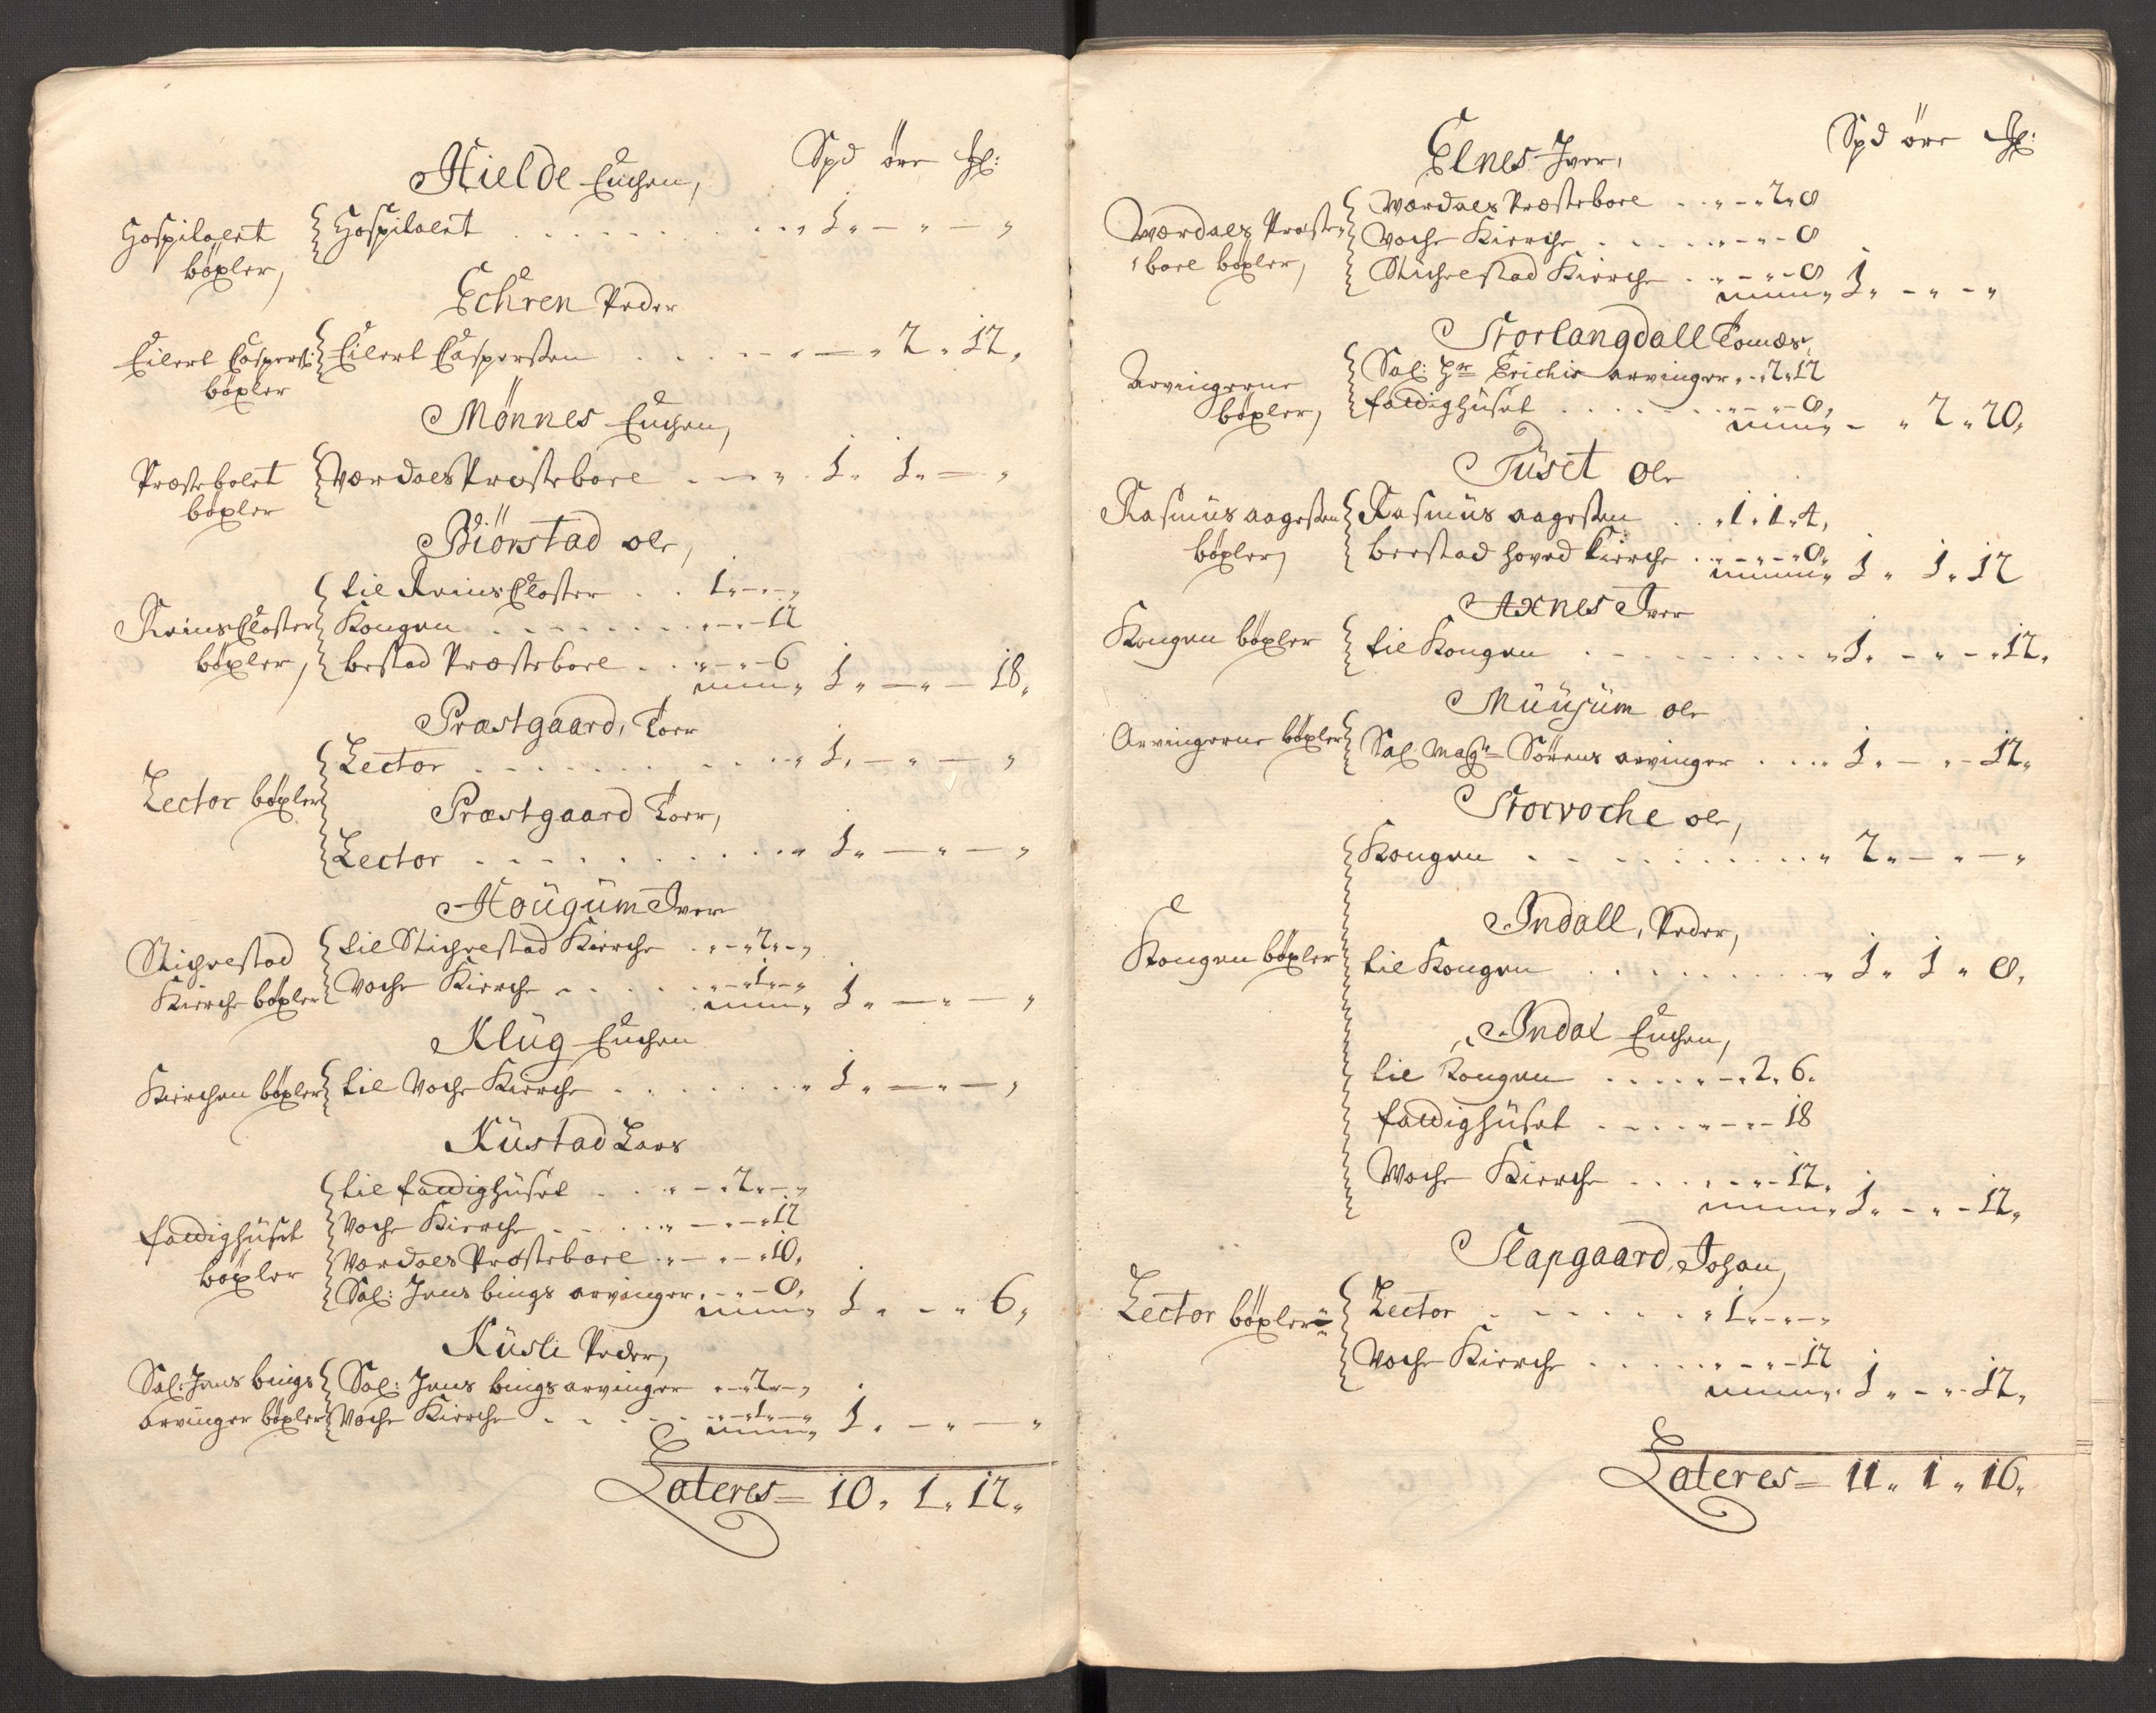 Spd öre ꝶl:
Hielde Luchen,
Hospitalet
böxler,
Hospitalet . . . . . . . . „ 1 „ — „ — „
Echren Peder
Eilert Caspersß:
böxler
Eilert Casperßen . . . . . — „ 2 „ 12 „
Mönnes Luchen,
Præstebolet
böxler
Værdals Præstebole . — „ 1 „ 1 „ — „
Biörstad ole,
Reins Closter
böxler,
til Reins Closter . . 1 „ — „ — „
Kongen . . . . . . . „ — „ 12
bestad Præstebole . . „ — „ 6
„ 1 „ — „ — 18 „
Præstgaard, Toer
Lector böxler
Lector . . . . . . . . . „ 1 „ — „ — „
Præstgaard Toer,
Lector . . . . . . . . . „ 1 „ — „ — „
Hougum Iver
Stichlestad
Kierche böxler
til Stichlestad Kierche . „ — „ 2 „ — „
Voche Kierche . . . . „ — „ 1 „ — „
„ 1 „ — „ — „
Klug Luchen
Kierchen böxler
til Voche Kierche . . . . . . „ 1 „ — „ — „
Kustad Lars
fattighuset
böxler
til fattighuset . . „ — „ 2 „ — „
Voche Kierche . . . . „ — „ — „ 12
Værdals Præstebole . „ — „ — „ 10 „
Sal: Jens bings arvinger . „ — „ — 8 „
„ 1 „ — „ 6 „
Kusli Peder,
Sal: Jens bings
arvinger böxler
Sal: Jens bings arvinger „ — „ 2 „ — „
Voche Kierche . . . . „ — „ 1 „ — „
„ 1 „ — „ — „
Lateres = 10 „ 1 „ 12 „
Spd öre ꝶl:
Elnes Iver,
Værdals Præste-
bole böxler,
Værdals Præstebole . . „ — „ 2 „ 8
Voche Kierche . . . . . „ — „ — 8
Stichlestad Kierche . „ — „ — 8
„ 1 „ — „ — „
Storlangdall Tomæs,
Arvingerne
böxler,
Sal: Hr Erichs arvinger „ — „ 2 „ 12
fattighuset . . . . . . „ — „ — 8 „
„ — „ 2 „ 20 „
Tuset Ole
Rasmus aageßen
böxler,
Rasmus aageßen . . „ 1 „ 1 „ 4 „
beestad hoved Kierche . „ — „ — „ 8 „
„ 1 „ 1 „ 12
Axnes Iver
Kongen böxler
til Kongen . . . . . . . . „ 1 „ — „ — „ 12 „
Muusum ole
Arvingerne böxler
Sal: Magr Sörens arvinger . . . „ 1 „ — „ — 12 „
Storvoche ole,
Kongen . . . . . . . . . „ 2 „ — „ — „
Indall, Peder,
Kongen böxler
til Kongen . . . . . . . . „ 1 „ 1 „ 8 „
Indal Luchen,
til Kongen . . . . „ — „ 2 „ 6 „
fattighuset . . . . „ — „ — 18
Woche Kierche . . . „ — „ — 12 „
„ 1 „ — „ — 12 „
Slapgaard, Johan,
Lector böxler
Lector . . . . . . „ 1 „ — „ — „
Voche Kierche . . . . . „ — „ — 12
„ 1 „ — „ — 12 „
Lateres = 11 „ 1 „ 16 „